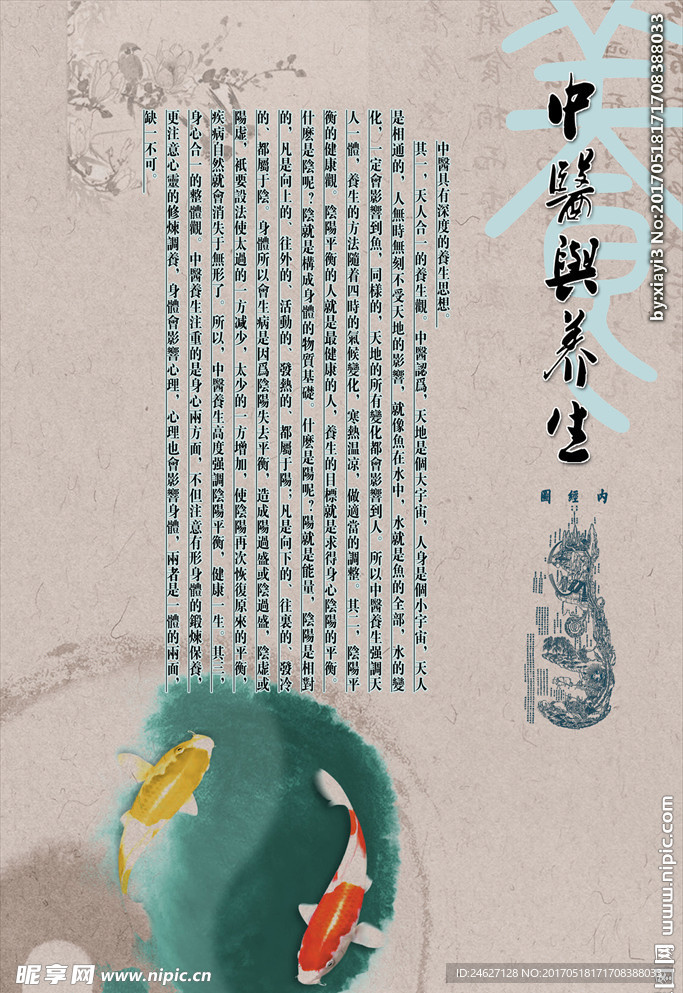 養
中醫與养生
内經圖
中醫具有深度的養生思想。
其一，天人合一的養生觀。中醫認爲，天地是個大宇宙，人身是個小宇宙，天人
是相通的，人無時無刻不受天地的影響，就像魚在水中，水就是魚的全部，水的變
化，一定會影響到魚，同樣的，天地的所有變化都會影響到人。所以中醫養生强調天
人一體，養生的方法隨着四時的氣候變化，寒熱温凉，做適當的調整。其二，陰陽平
衡的健康觀。陰陽平衡的人就是最健康的人，養生的目標就是求得身心陰陽的平衡
什麽是陰呢？陰就是構成身體的物質基礎。什麽是陽呢？陽就是能量，陰陽是相對
的，凡是向上的、往外的、活動的、發熱的、都屬于陽；凡是向下的、往裏的、發冷
的、都屬于陰。身體所以會生病是因爲陰陽失去平衡，造成陽過盛或陰過盛，陰虚或
陽虚，衹要設法使太過的一方减少，太少的一方增加，使陰陽再次恢復原來的平衡，
疾病自然就會消失于無形了。所以，中醫養生高度强調陰陽平衡，健康一生。其三，
身心合一的整體觀。中醫養生注重的是身心兩方面，不但注意有形身體的鍛煉保養，
更注意心靈的修煉調養，身體會影響心理，心理也會影響身體，兩者是一體的兩面，
缺一不可。
by:xiayi3 No:20170518171708388033
www.nipic.com
昵享网 www.nipic.cn
ID:24627128 NO:20170518171708388033